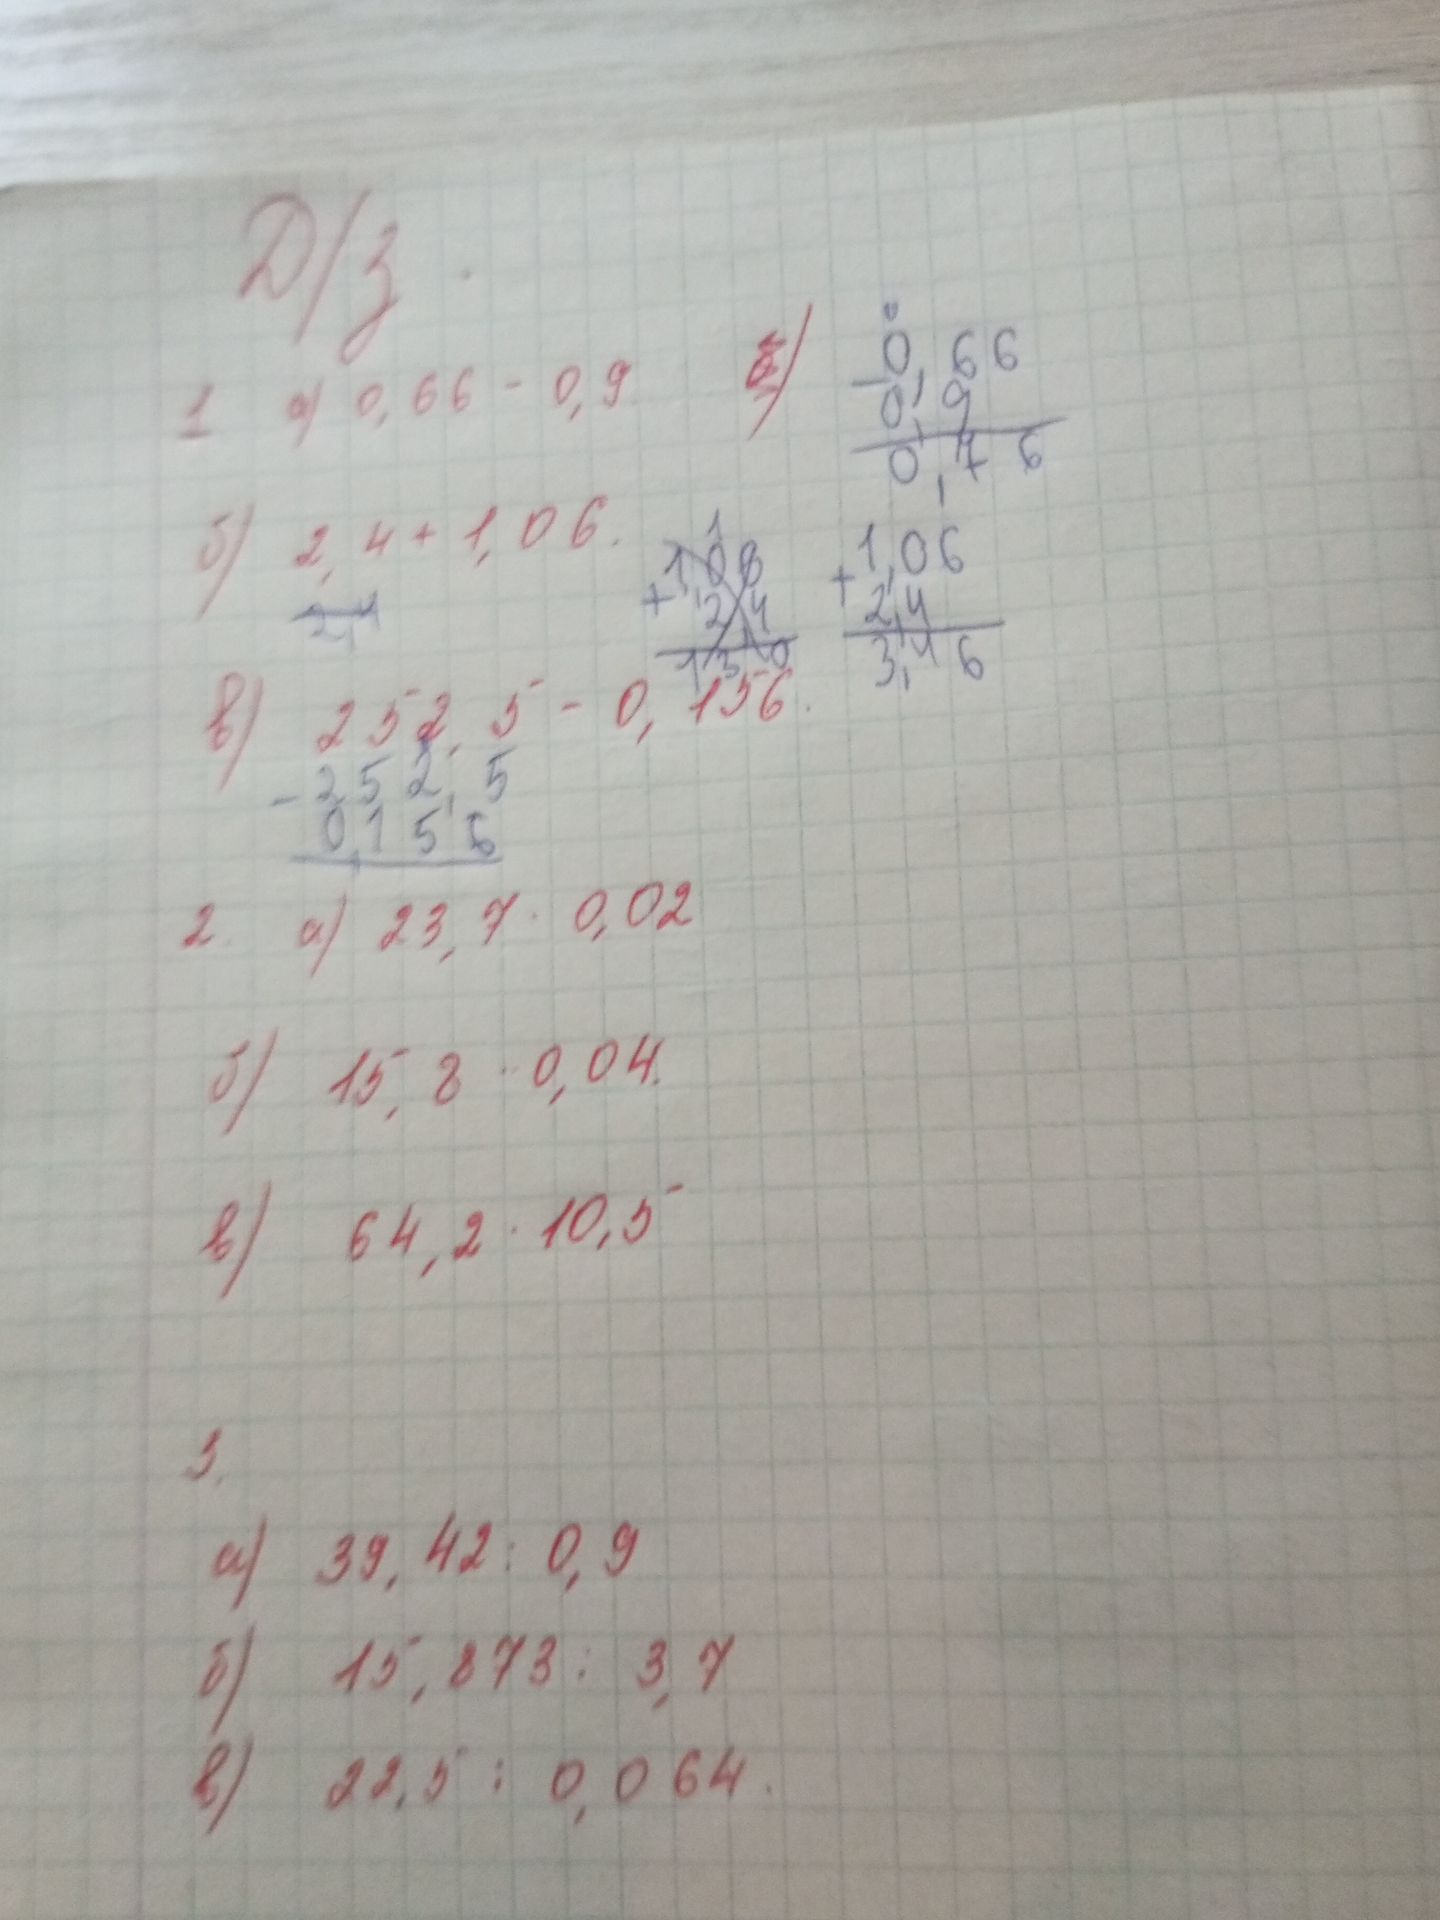 Д/з.
1 а) 0,66 - 0,9
а)
0,66
-
0,9
0,76
б) 2,4 + 1,06.
2,4
1
1,08
+
2 4
1,3 0
1,06
+
2,4
3,46
в) 252,5 - 0,156.
- 252,5
0,156
2. а) 23,7 · 0,02
б) 15,8 · 0,04.
в) 64,2 · 10,5
3.
а) 39,42 : 0,9
б) 15,873 : 3,7
в) 22,5 : 0,064.